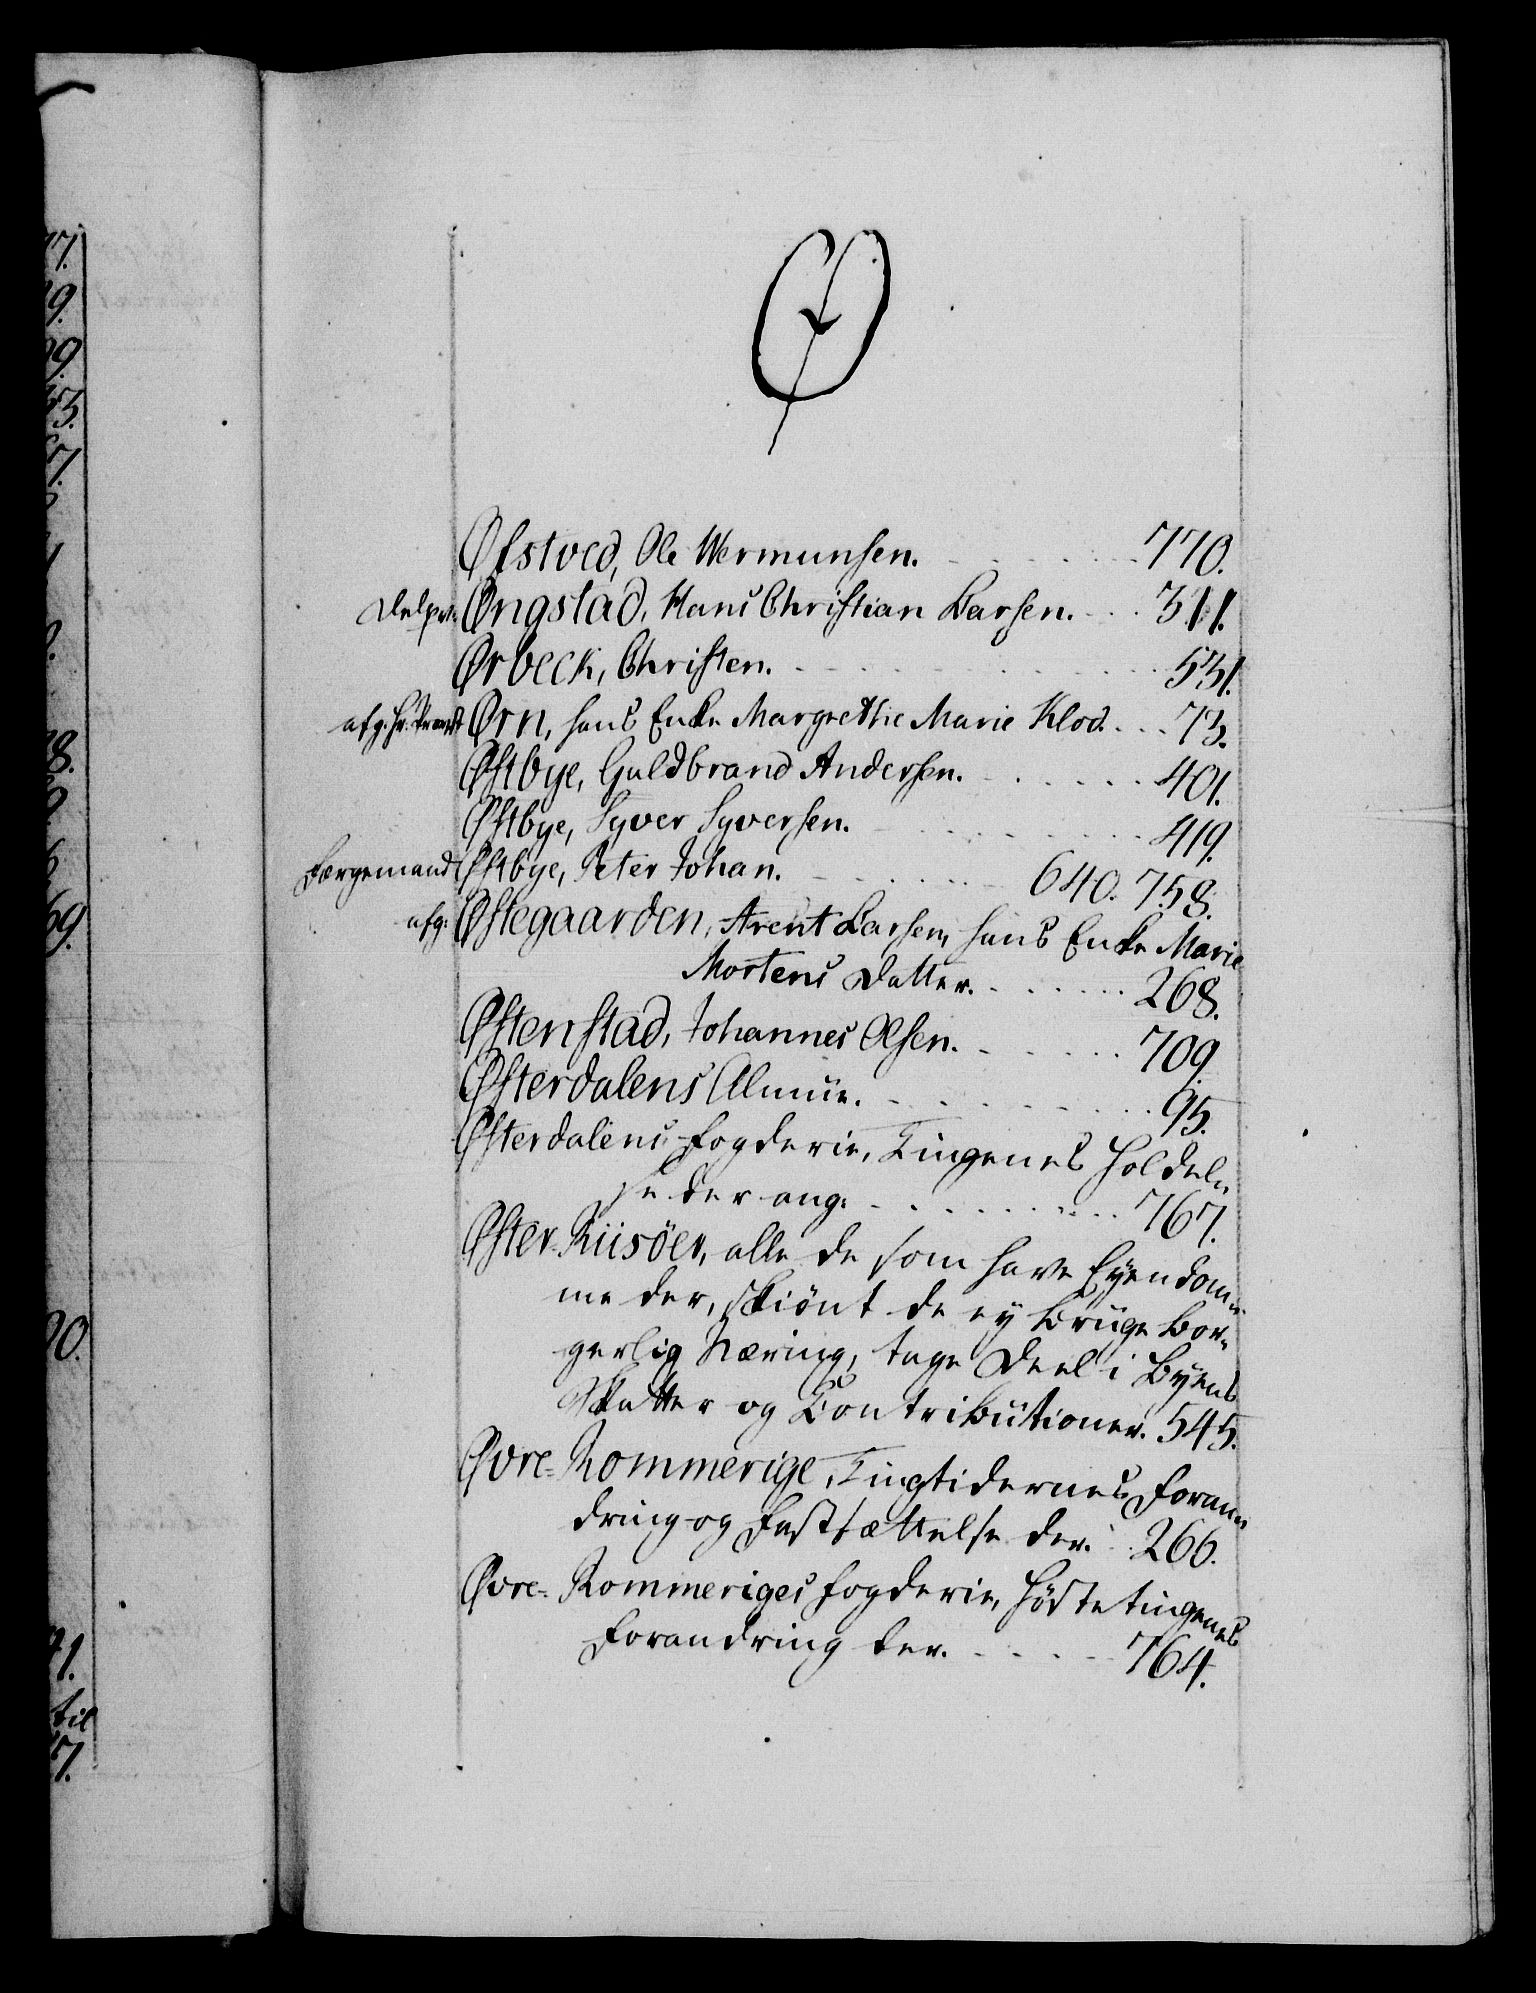 Ø
Øfstved, Ole Wermunsen. 770.
Øngstad, Hans Christian Larsen. 311.
Ørbeck, Christen. 531.
afg. Hr. Provst Ørn, hans Enke Margrethe Marie Klod. 73.
Østbye, Guldbrand Andersen. 401.
Østbye, Syver Syversen. 419.
Færgemand Østbye, Peter Johan. 640. 758.
afg: Østegaarden, Arent Larsen, hans Enke Marie
Mortens Datter. 268.
Østenstad, Johannes Olsen. 709.
Østerdalens Almue. 95.
Østerdalens Fogderie, Tingenes Holdel-
se der ang: 767.
Øster-Riisöer, alle de som have Eyendom-
me der, skiönt de ey bruge bor-
gerlig Næring, tage Deel i Byens
Skatter og Contributioner. 545.
Øvre-Rommerige, Tingtidernes Foran-
dring og Fastsættelse der. 266.
Øvre-Rommeriges Fogderie, Höstetingenes
Forandring der. 764.
77.
9.
99.
53.
8.
69.
90.
71.
til
77.